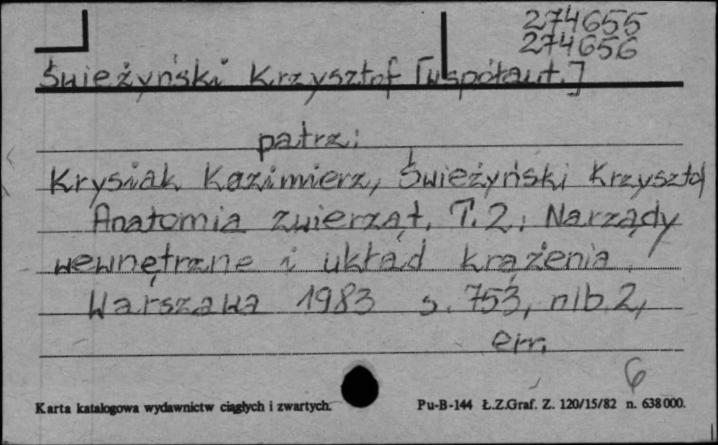 274655
274656
Świeżyński Krzysztof [współaut.]
patrz:
Krysiak Kazimierz, Świeżyński Krzysztof
Anatomia zwierząt. T.2: Narządy
wewnętrzne i układ krążenia.
Warszawa 1983 s. 753, nlb. 2,
err.
6
Karta katalogowa wydawnictw ciągłych i zwartych. Pu-B-144 Ł.Z.Graf. Z. 120/15/82 n. 638000.